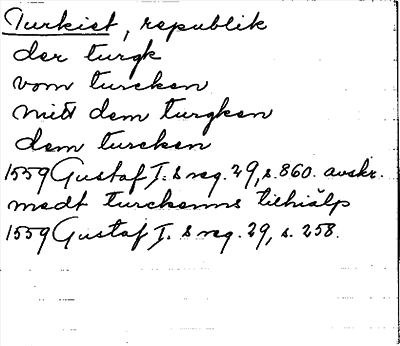 Turkiet, republik
der turgk
vom turcken
mitt dem turgken
dem turcken
1559 Gustaf I:s reg. 29, s. 860. avskr.
medt turckenns tilhiälp
1559 Gustaf I:s reg. 29, s. 258.